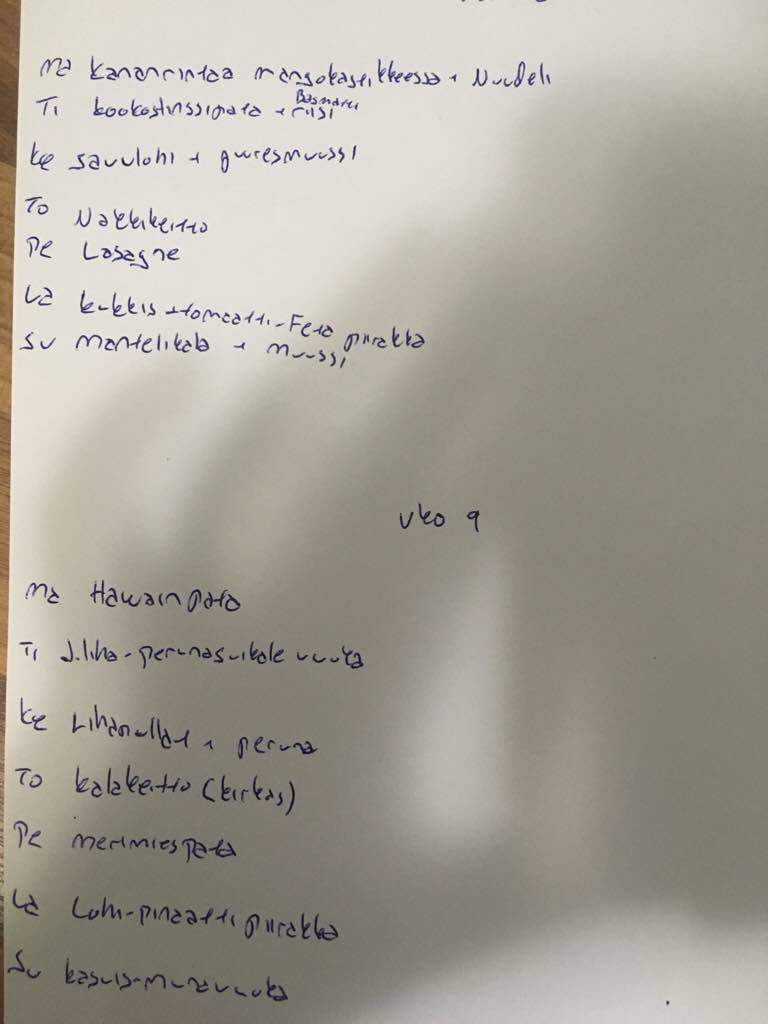 Ma Kananrintaa mangokastikkeessa + Nuudeli
Ti kookos + Basmati riisi
Ke savulohi + muussi
To Nakkikeitto
Pe Lasagne
La kukkis + tomaatti-Feta piirakka
Su mantelikala + muussi
vko 9
Ma Hawain pata
Ti J.liha-perunasuikale vuoka
Ke Lihapullat + peruna
To kalakeitto (kirkas)
Pe merimiespata
La Lohi-pinaatti piirakka
Su kasvis-munavuoka